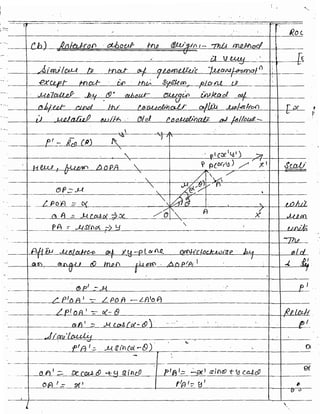 Ch) Rotation about the Origin :- This method
is very
Similar to that of geometric Transformatn
except that in this System, plane is
rotated by θ° about Origin instead of
object and the coordinates after rotation
is related with old coordinates as follow -
p' - Rθ (P)
y' y
p'(x'y')
P P(x,y) x'
Here, from △OPA
OP = r
∠POA = α
OA = r cosα ⇒ x
PA = r sinα ⇒ y
O A X
After rotation of xy-plane anticlockwise by
an angle θ then from △OP'A'
OP' = r
∠P'OA' = ∠POA - ∠A'OA
∠P'OA' = α - θ
OA' = r cos(α - θ)
Similarly
P'A' = r sin(α - θ)
OA' = x cosθ + y sinθ P'A' = -x sinθ + y cosθ
OA' = x' P'A' = y'